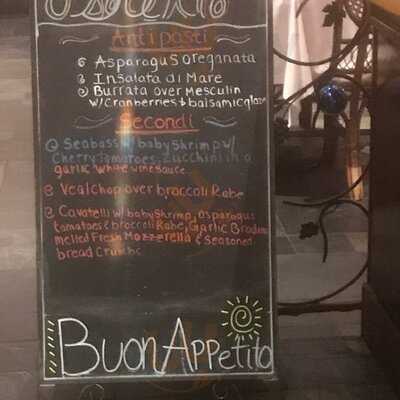 Antipasti
Asparagus oreganata
Insalata di Mare
Burrata over Mesculin
w/Cranberries & balsamic glaze
Secondi
Seabass w/ baby shrimp w/
Cherry Tomatoes, Zucchini in a
garlic white wine sauce
Veal chop over broccoli Rabe
Cavatelli w/ baby shrimp, asparagus
tomatoes & broccoli Rabe, Garlic
melled Fresh Mozzerella & seasoned
bread Crumbs
Buon Appetito